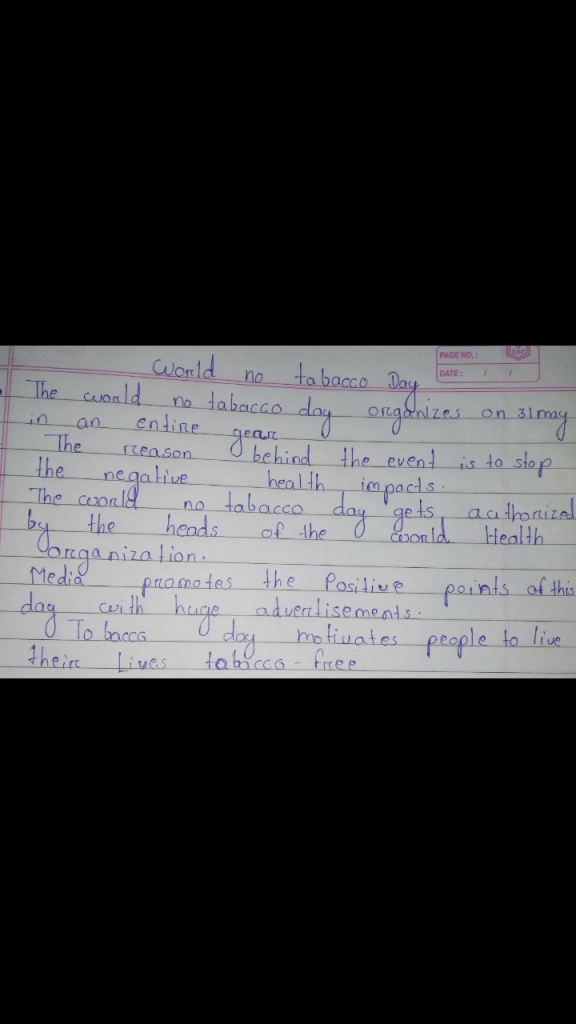 PAGE NO.:
DATE: / /
World no tabacco Day
The world no tabacco day organizes on 31 may
in an entire year
The reason behind the event is to stop
the negative health impacts.
The world no tabacco day gets authorized
by the heads of the world Health
organization.
Media promotes the Positive points of this
day with huge advertisements.
To bacco day motivates people to live
their Lives tobacco-free